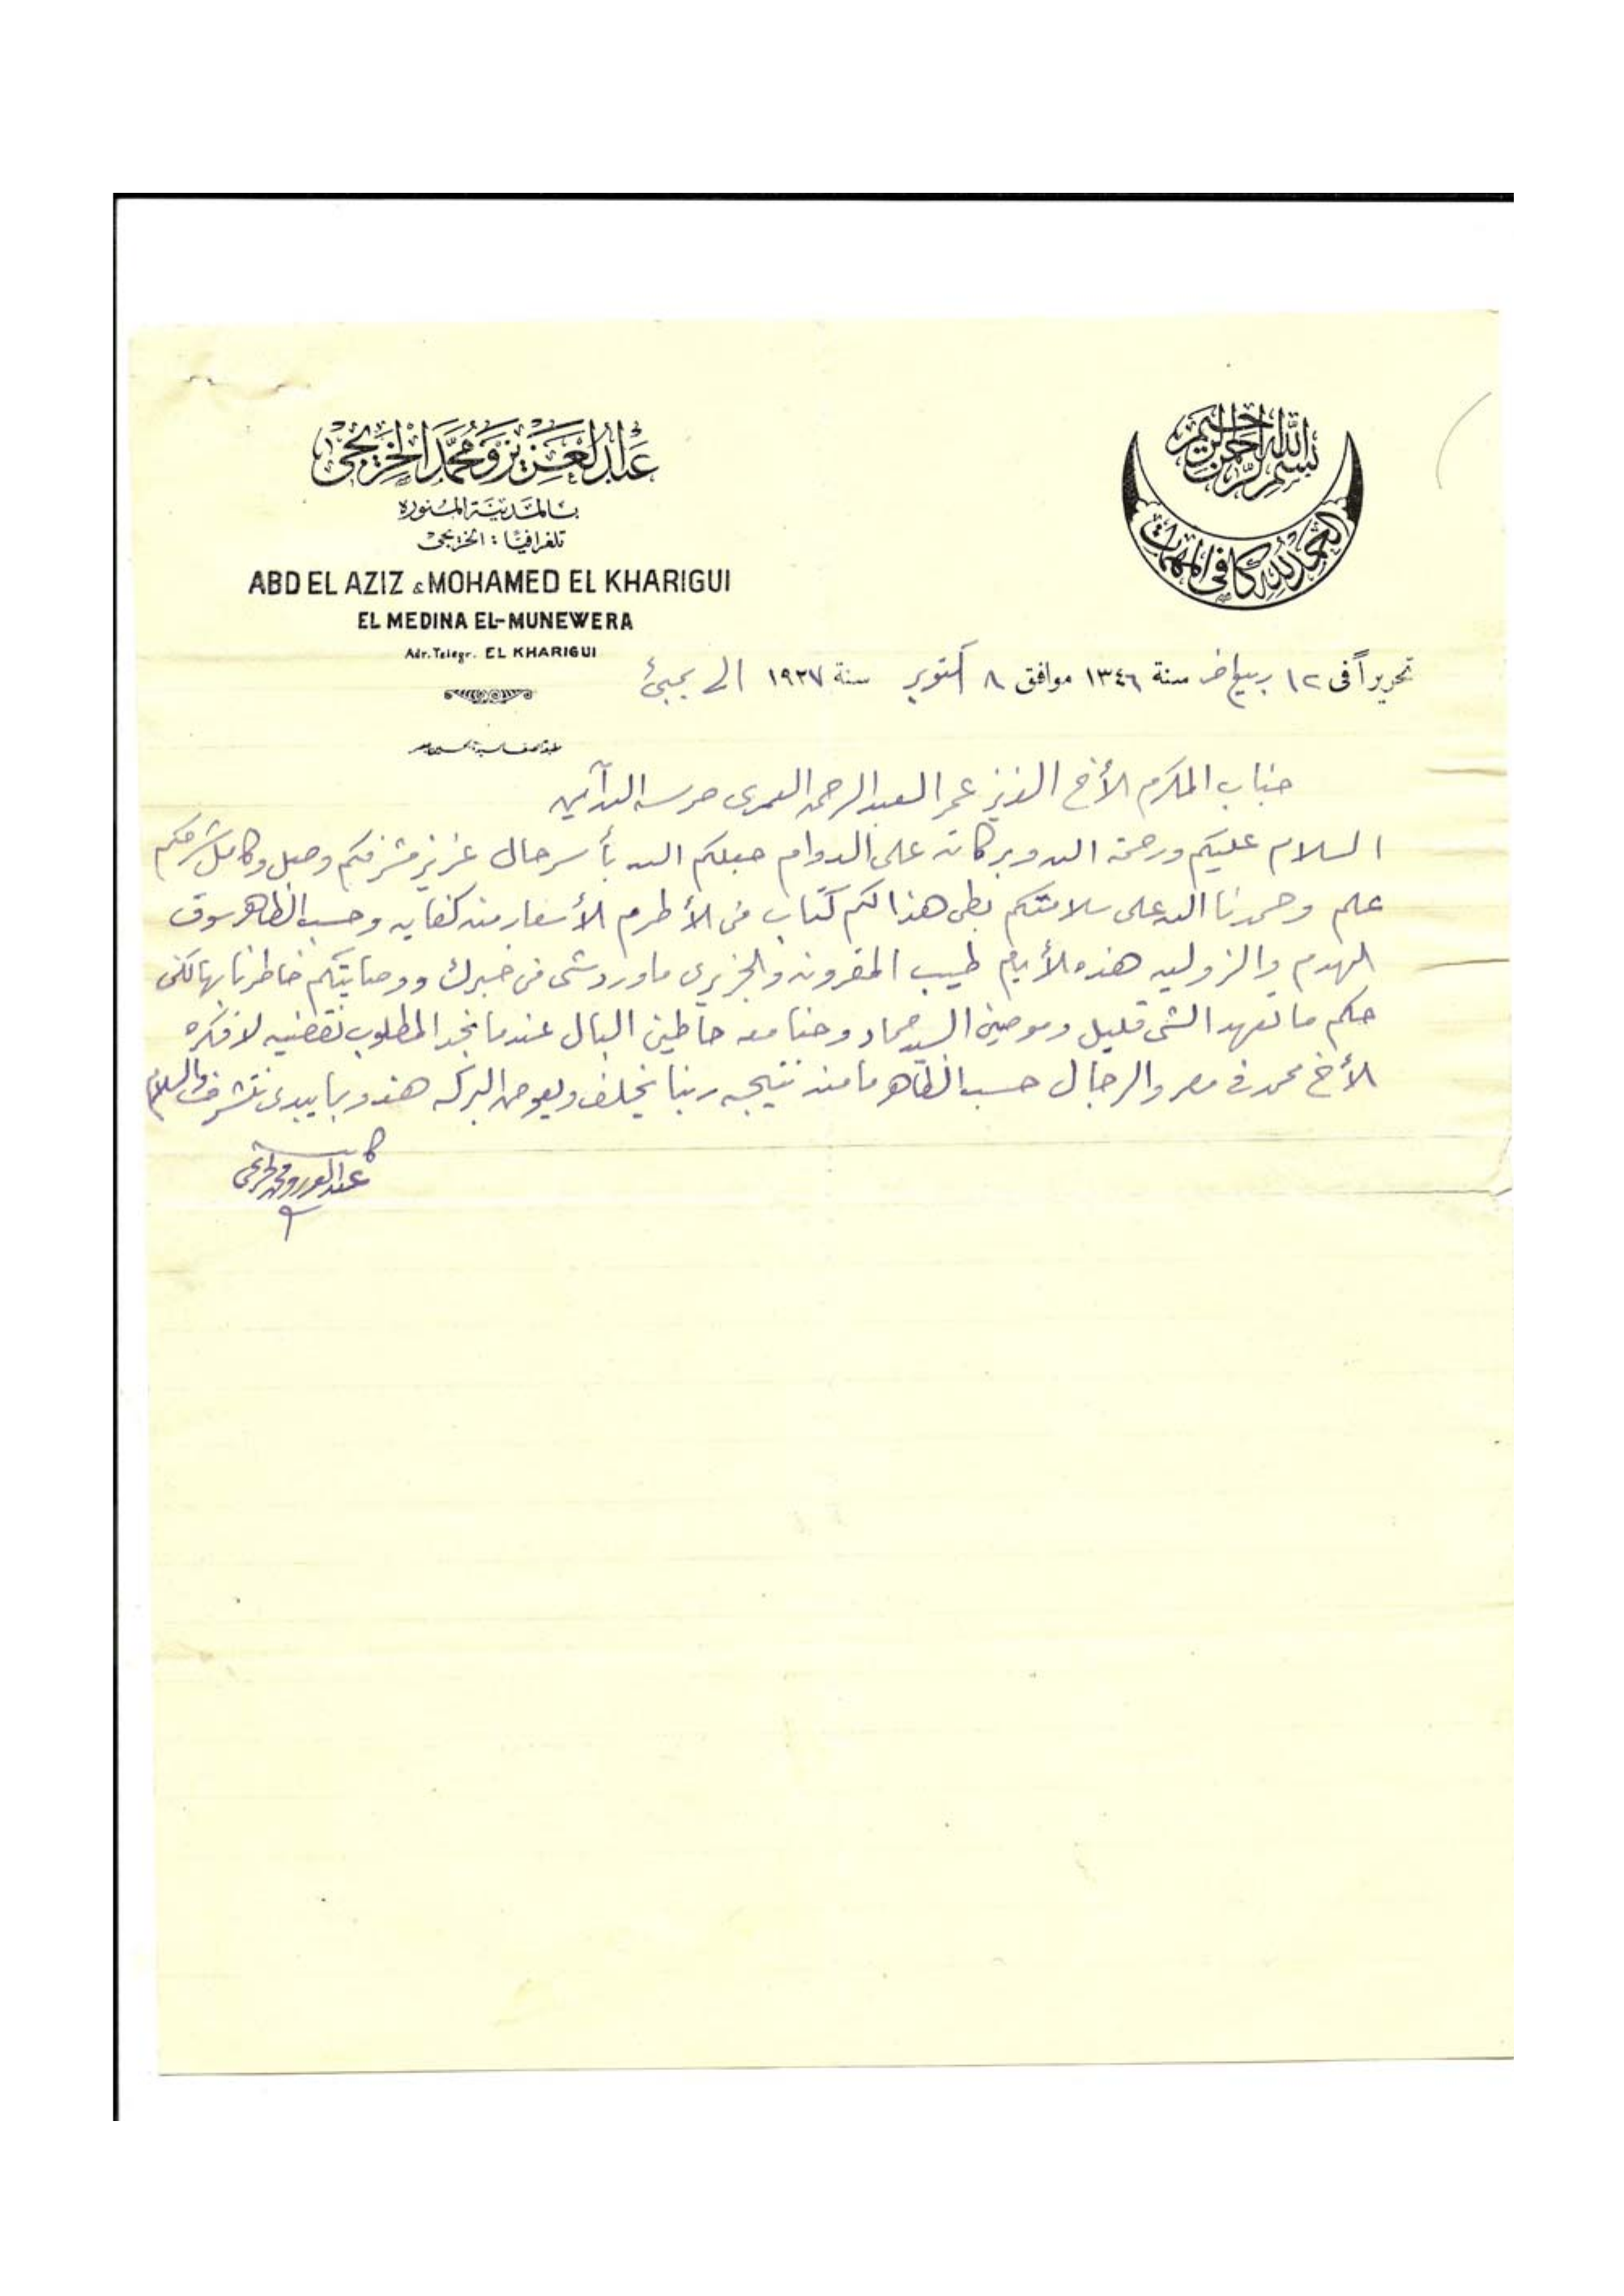 بسم الله الرحمن الرحيم
الحمد لله كافي المهمات
عبد العزيز ومحمد الخريجي
بالمدينة المنوره
تلغرافيا : الخريجي
ABD EL AZIZ & MOHAMED EL KHARIGUI
EL MEDINA EL-MUNEWERA
Adr. Telegr. EL KHARIGUI
تحريراً في ١٢ ربيع اخر سنة ١٣٤٦ موافق ٨ أكتوبر سنة ١٩٢٧ الى بمبئ
جناب المكرم الأخ العزيز عمر العبد الرحمن العمرى حرسه الله آمين
السلام عليكم ورحمة الله وبركاته على الدوام جعلكم الله بأسر حال عزيز مشرفكم وصل وكامل شرحكم
علم وحمدنا الله على سلامتكم بطي هذا لكم كتاب من الأطرم الأسعار منه كفايه وحسب الظاهر سوق
الهدم والزوليه هذه الأيام طيب المقرونه والجزيري ما ورد شى من خبرك ووصايتكم خاطرنا بها لكن
حكم ما تعهد الشى قليل وموصين السيد حماد وحنا معه حاطين البال عندما نجد المطلوب نقضيه لا فكره
الأخ محمد في مصر والرجال حسب الظاهر ما منه نتيجه ربنا يخلف ويعوض البركه هذه وبما يبدى نتشرف والسلام